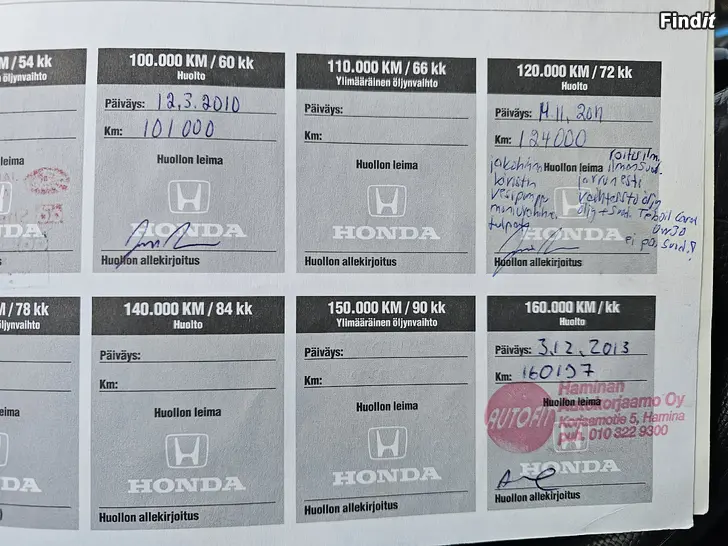 Findit
/ 54 kk
öljynvaihto
leima
DA
100.000 KM / 60 kk
Huolto
Päiväys: 12.3.2010
Km: 101 000
Huollon leima
HONDA
Huollon allekirjoitus
110.000 KM / 66 kk
Ylimääräinen öljynvaihto
Päiväys:
Km:
Huollon leima
HONDA
Huollon allekirjoitus
120.000 KM / 72 kk
Huolto
Päiväys:
Km: 124000
Huollon leima
jarrunesti
vesipumppu
ei
HONDA
Huollon allekirjoitus
/ 78 kk
öljynvaihto
leima
DA
140.000 KM / 84 kk
Huolto
Päiväys:
Km:
Huollon leima
HONDA
Huollon allekirjoitus
150.000 KM / 90 kk
Ylimääräinen öljynvaihto
Päiväys:
Km:
Huollon leima
HONDA
Huollon allekirjoitus
160.000 KM / kk
Huolto
Päiväys: 3.12.2013
Km: 160197
Huollon leima
AUTOFIT
Haminan
Autokorjaamo Oy
Korjaamotie 5, Hamina
puh. 010 322 9300
HONDA
Huollon allekirjoitus